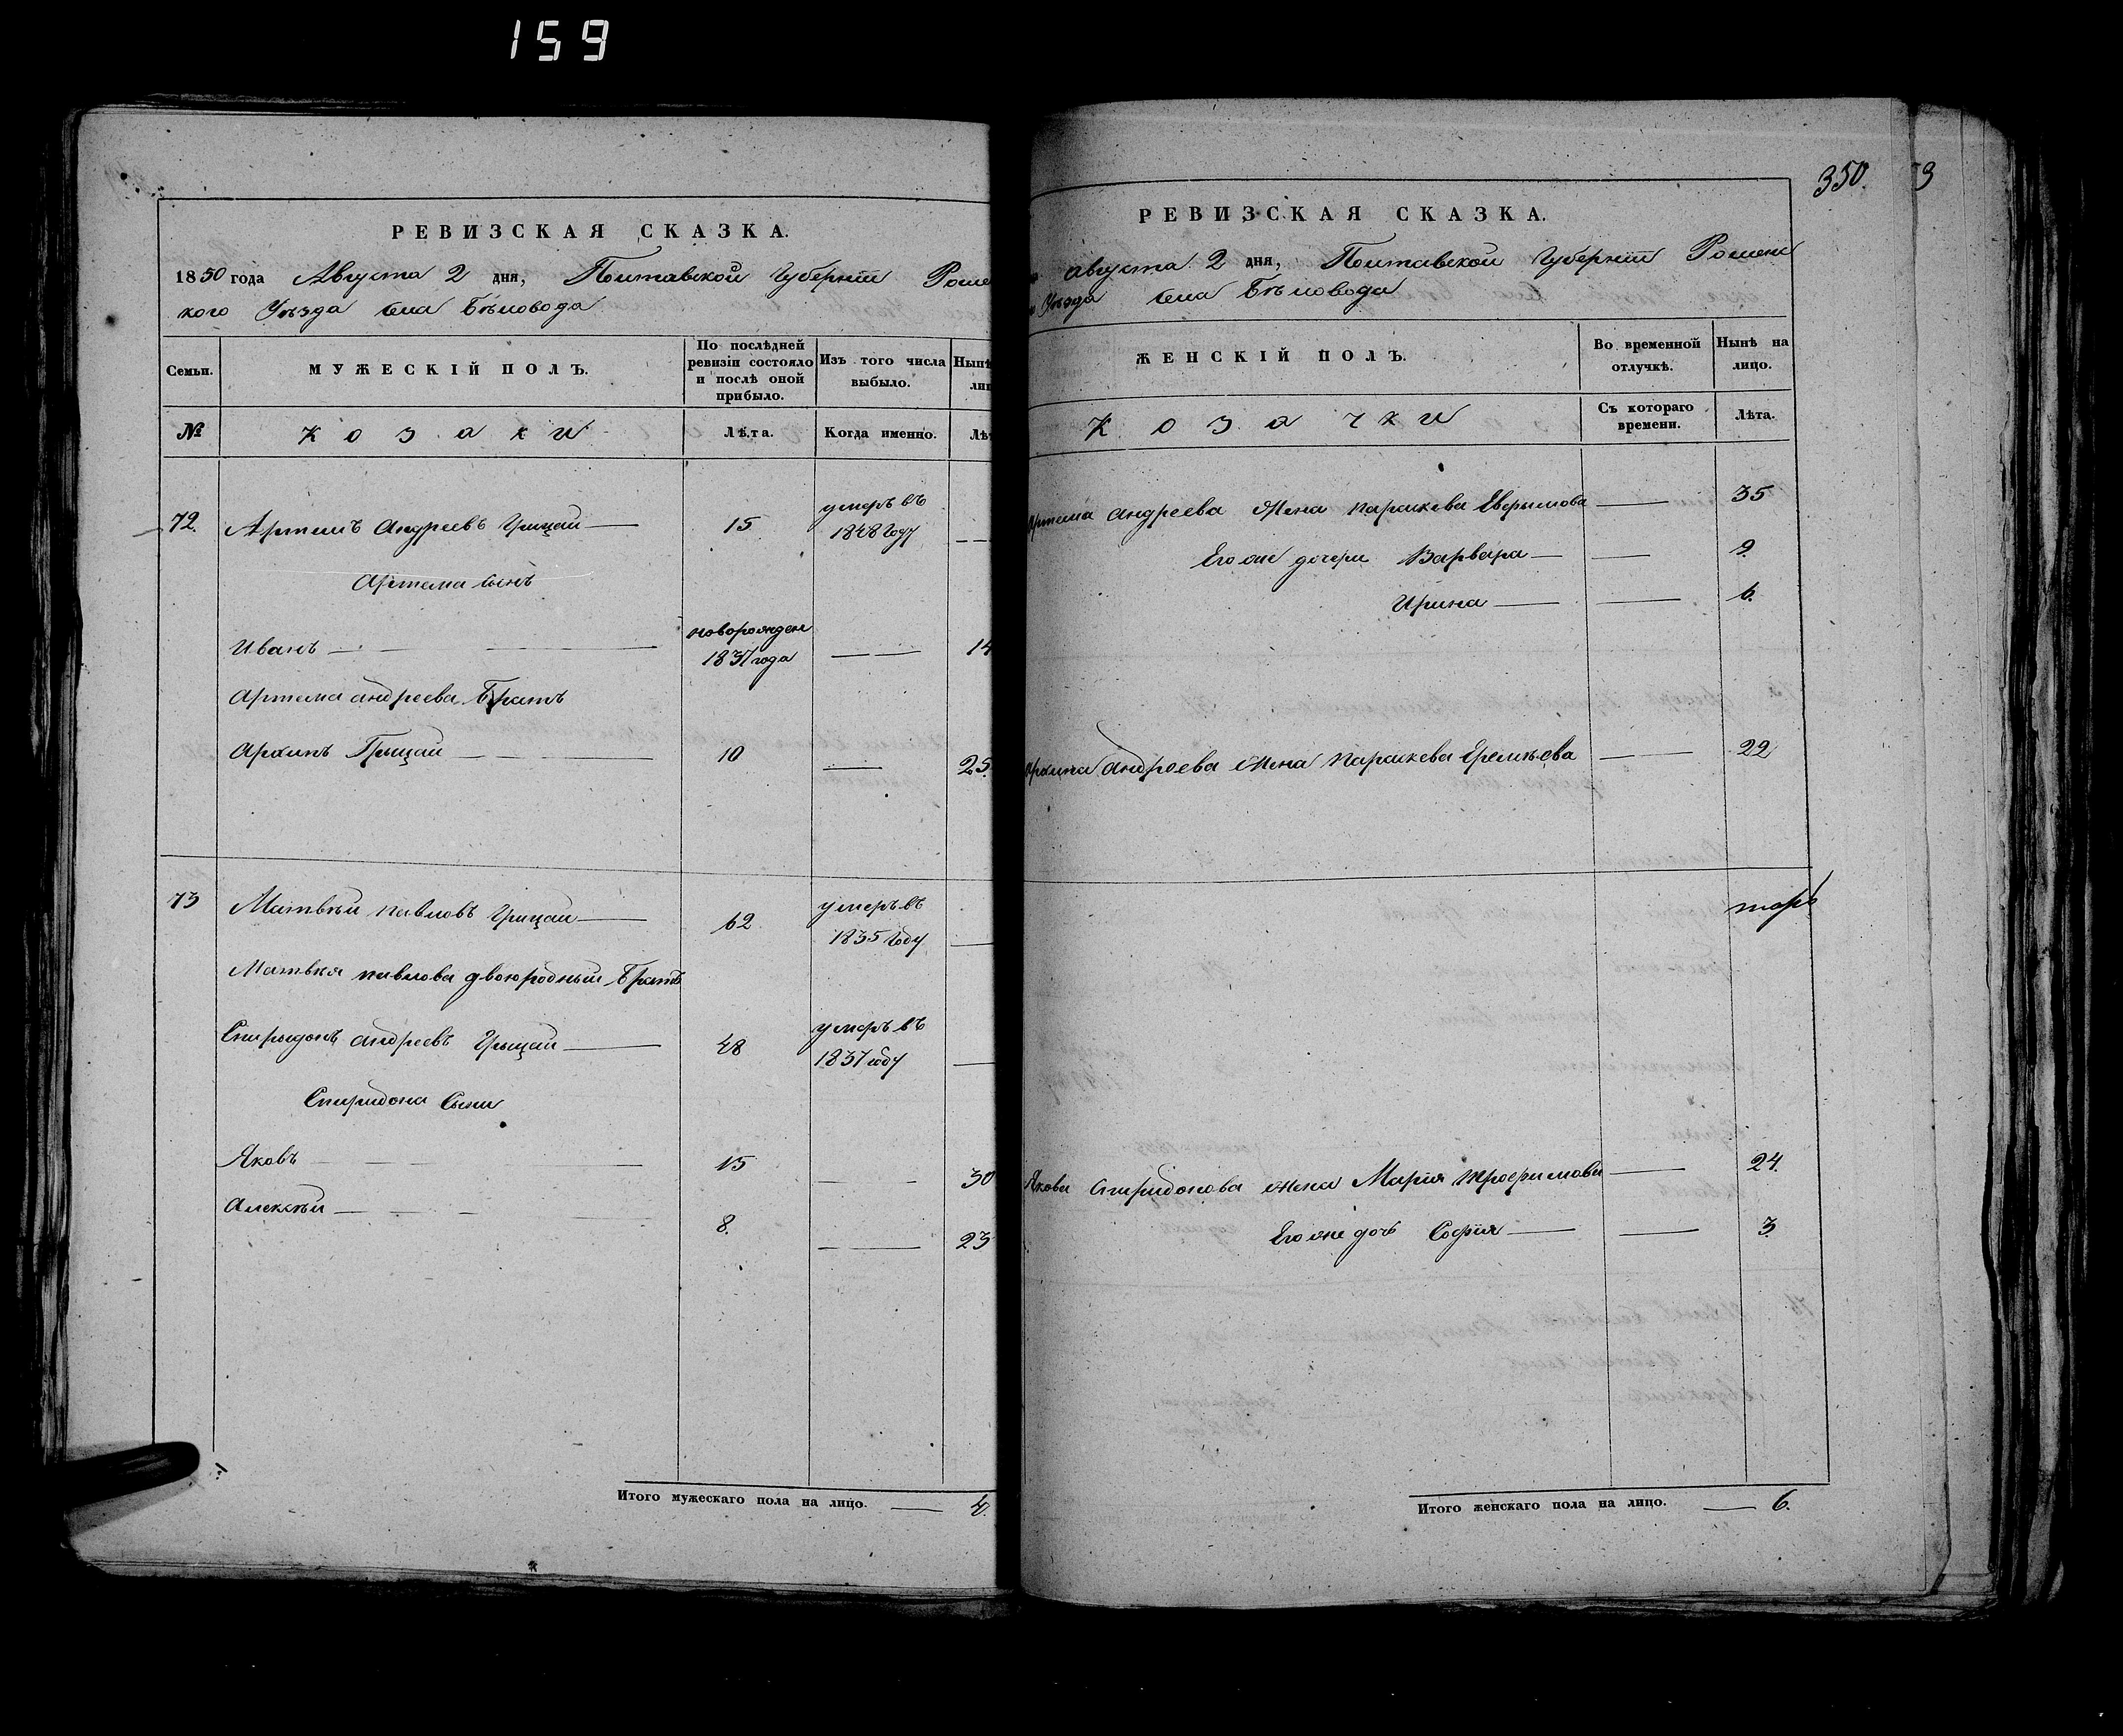 159
РЕВИЗСКАЯ СКАЗКА.
1850 года Августа 2 дня, Полтавской Губернїи Роме
кого Уѣзда села Бѣловода
Семьи.
МУЖЕСКІЙ ПОЛЪ.
По послѣдней ревизіи состояло и послѣ оной прибыло.
Изъ того числа выбыло.
Нынѣ
лиц
№
Козаки
Лѣта.
Когда именно.
Лѣт
72. Артемъ Андреевъ Грицай 15 умеръ въ 1848 Году
Артема сынъ
Иванъ новорожден 1837 года 14
Артема Андреева Братъ
Архипъ Грыцай 10 25.
73 Матвѣй Павловъ Грицай 62 умеръ въ 1835 Году
Матвѣя Павлова двоюродный Братъ
Спирыдонъ Андреевъ Грыцай 48 умеръ въ 1837 году
Спиридона Сыни
Яковъ 15 30
Алексѣй 8. 23
Итого мужескаго пола на лицо. 4.
350.
РЕВИЗСКАЯ СКАЗКА.
Августа 2 дня, Полтавской Губернїи Роменс
Уѣзда села Бѣловода
ЖЕНСКІЙ ПОЛЪ.
Во временной отлучкѣ.
Нынѣ на лицо.
Козачки
Съ котораго времени.
Лѣта.
Артема Андреева жена Параскева Евфимова 35
Его же дочери Варвара 9.
Ирина 6.
Архипа Андреева жена Параскева Еремѣева 22
Якова Спиридонова жена Марїя Трофимова 24.
Его же дочь Софїя 3.
Итого женскаго пола на лицо. 6.